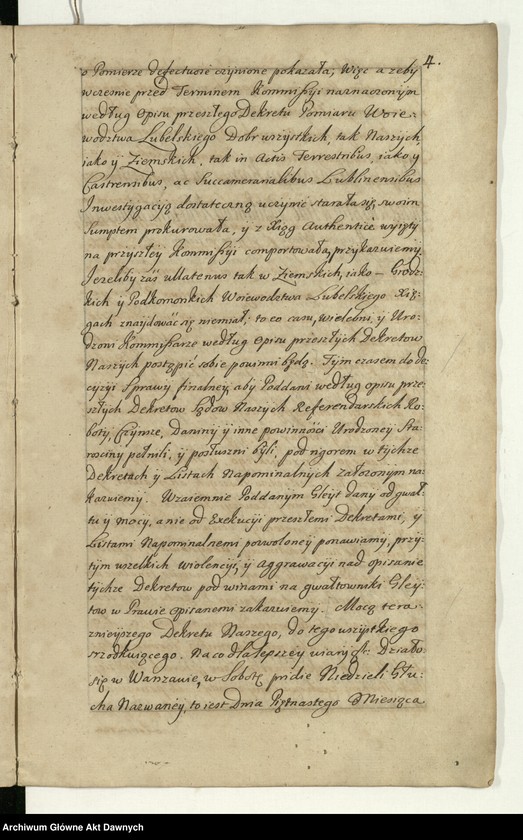 4.
o Pomierze defectuosè czynione pokazała; Więc a zeby
wczesnie przed Terminem Kommissyi naznaczonym
według Opisu przeszłego Dekretu Pomiaru Woie:
wodztwa Lubelskiego Dobr wszystkich, tak Naszych,
iako y Ziemskich, tak in Actis Terrestribus, iako y
Castrensibus, ac Succamerarialibus Lublinensibus
Inwestygacyią dostateczną uczynić starała się, swoim
Sumptem prokurowała, y z Xiąg Authenticè wyięty
na przyszłey Kommissyi comportowała, przykazuiemy.
Jezeliby zaś ullatenus tak w Ziemskich, iako – Grodz:
kich y Podkomorskich Woiewodztwa Lubelskiego Xię:
gach znaydować się niemiał; to eo casu, Wielebni y Uro:
dzeni Kommissarze według Opisu przeszłych Dekretow
Naszych postąpić sobie powinni będą. Tym czasem do de:
cyzyi Sprawy finalney, aby Poddani według opisu prze:
szłych Dekretow Sądow Naszych Referendarskich Ro:
boty, Czynsze, Daniny y inne powinności Urodzoney Sta:
rosciny pełnili, y posłuszni byli, pod rigorem w tychze
Dekretach y Listach Napominalnych załozonym na:
kazuiemy. Wzaiemnie Poddanym Gleyt dany od gwał:
tu y mocy, a nie od Exekucyi przeszłemi Dekretami, y
Listami Napominalnemi pozwoloney ponawiamy, przy:
tym wszelkich wiolencyi, y aggrawacyi nad opisanie
tychze Dekretow pod winami na gwałtowniki Gley:
tow w Prawie opisanemi zakazuiemy. Mocą tera:
znieyszego Dekretu Naszego, do tego wszystkiego
srzodkuiącego. Na co dla lepszey wiary etc: Działo
się w Warszawie, w Sobotę pridie Niedzieli Głu:
cha Nazwaney, to iest Dnia Piętnastego Miesiąca
Archiwum Główne Akt Dawnych